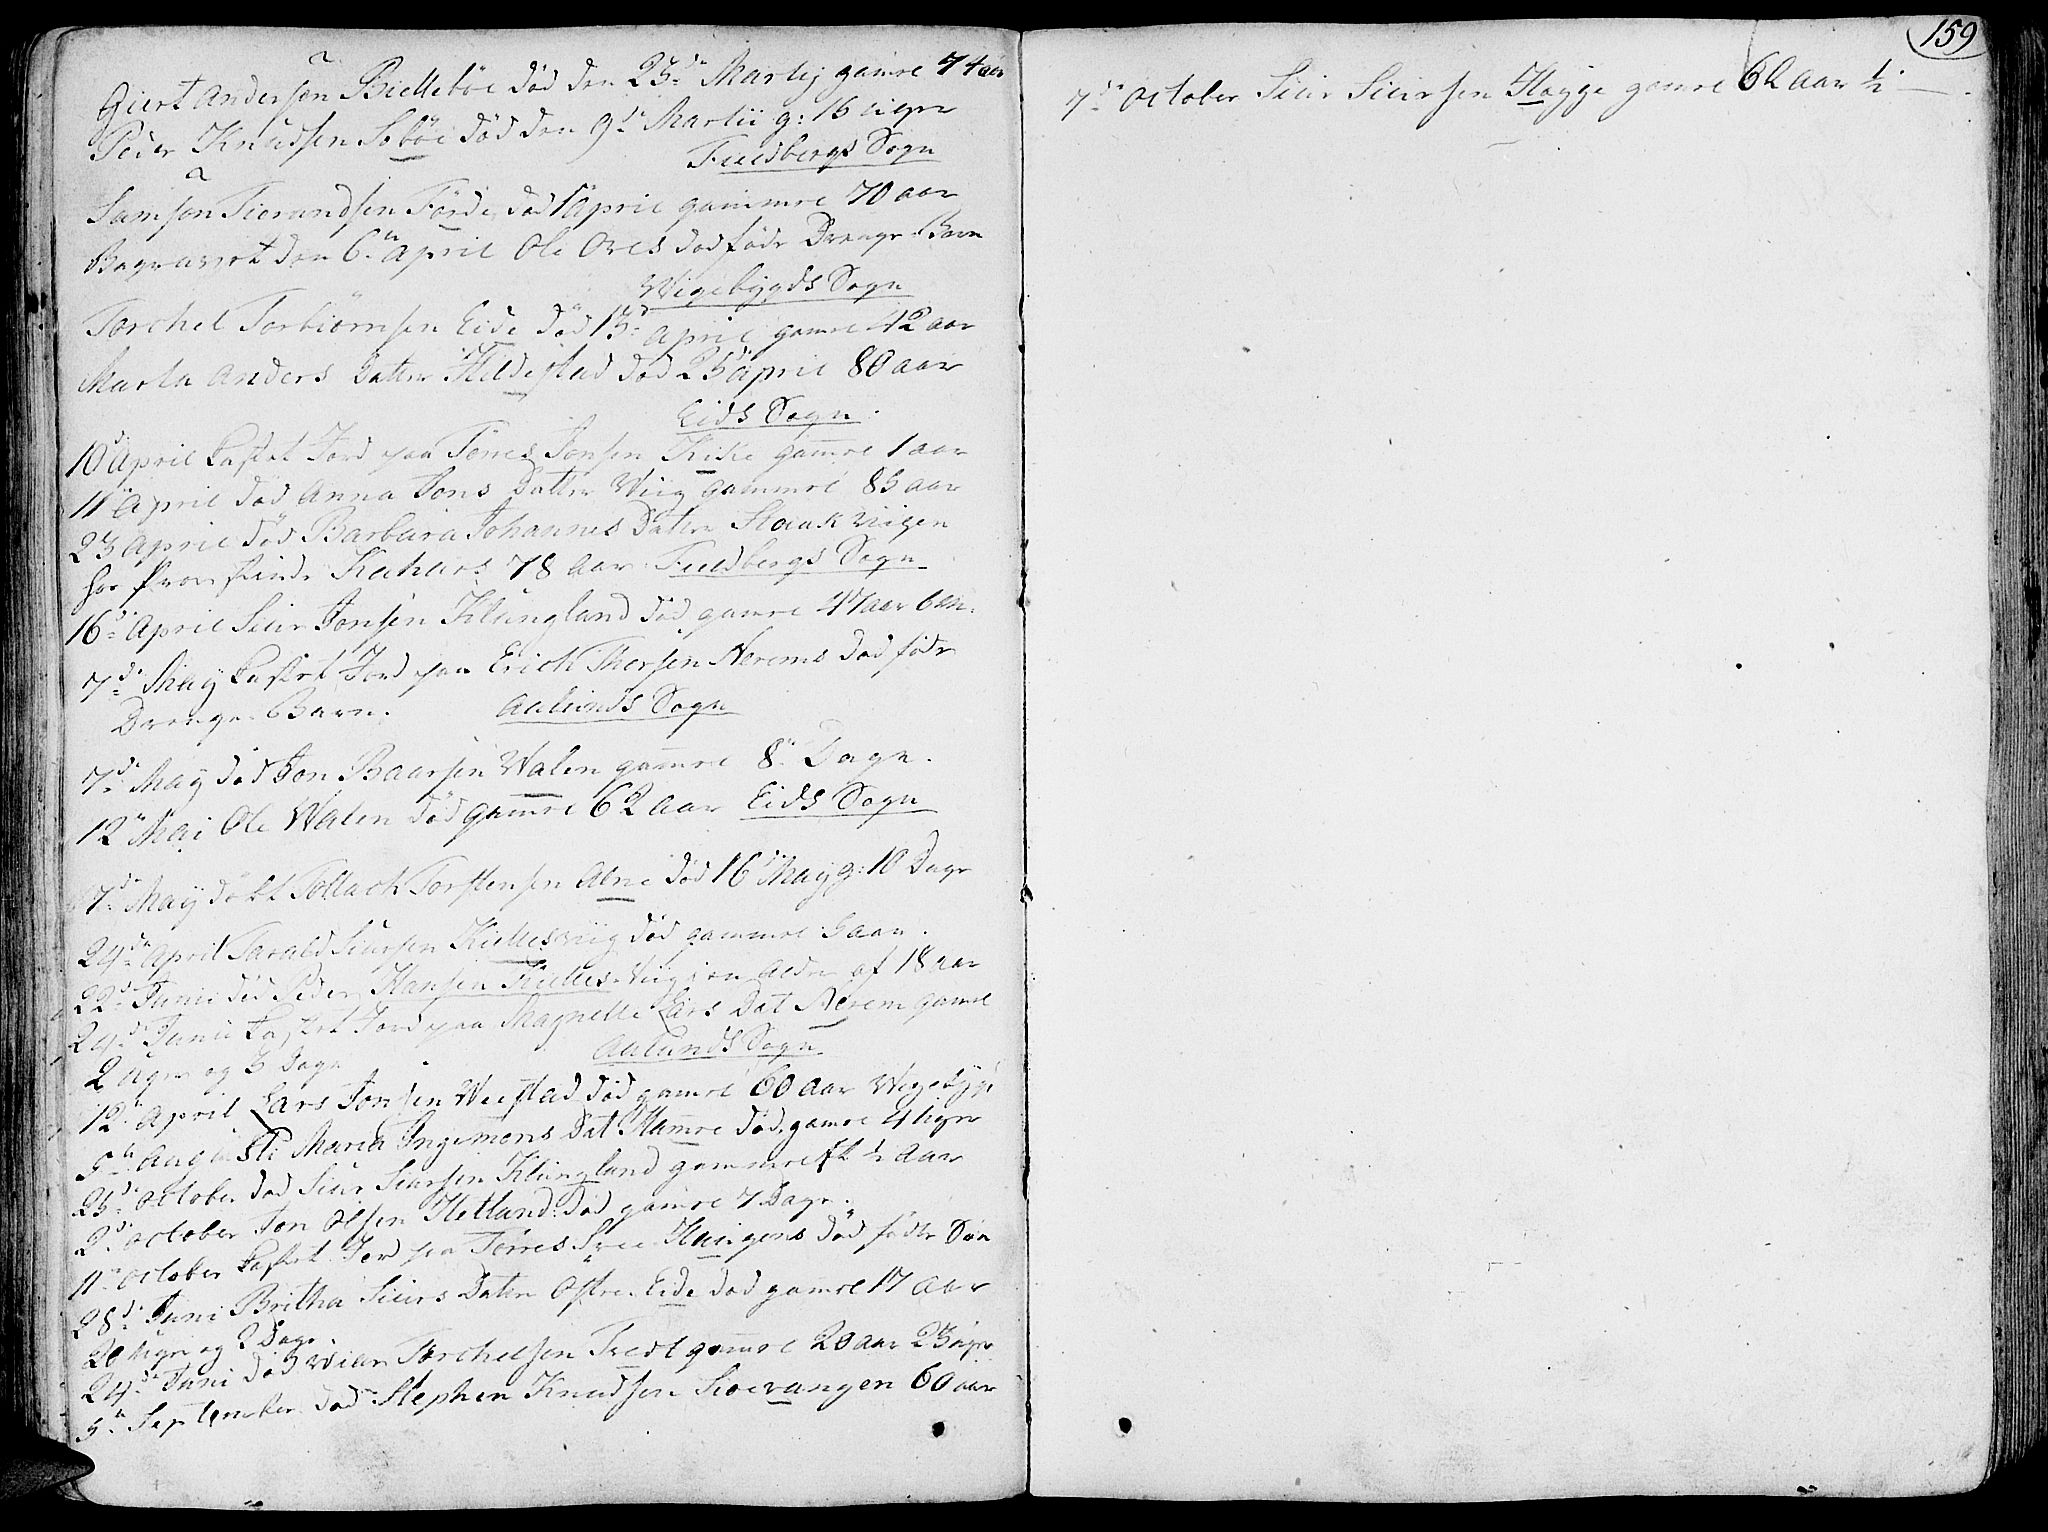 Giert Andersøn Biellebøe død den 23de Martij gamle 74 aar
Peder Knudsen Sobøe død den 9de Martii g: 16 uger
Fieldbergs Sogn
Samson Sierandsen Førde død 1 April gammel 70 aar
den 6te April Ole Øres død fødde Drenge Barn
Wigebÿgds Sogn
Torchel Torbiørnsen Eide død 13de April gamel 42 aar
Marta Anders Datter Hildestad død 25 April 80 aar
Eids Sogn
10de April Kastet Jord paa Tørres Jonsen Kike gamel 1 aar
11 April død Anna Jons Datter Wiig gammel 85 aar
23 April død Barbara Johannes Datter Staakviigen
78 aar Fieldbergs Sogn
16de April Siur Jonsen Klungland død gamel 47 aar 6 m:
7de Maÿ Kastet Jord paa Erich Thorsen Nerems død fødde
Drenge Barn. Aalunds Sogn
7de Maÿ død Jon Baarsen Walen gamel 8te Dage.
12te Mai Ole Walen død gamel 62 aar Eids Sogn
7de Maÿ døbt Tollach Torstensen Alne død 16de Maÿ g: 10 Dage
24de April Tarald Siursen Kiellesviig død gammel 5 aar.
22de Junii død Peder Hansen Kielles Wiig i en alder af 18 aar
24de Junii Kastet Jord paa Magnelle Lars Dat Nerem gamel
2 Uger og 3 Dage Aalunds Sogn
12te April Lars Jonsen Weestad død gamel 60 aar Wigebÿgd
5te Augusti Maria Ingemons Dat Hamre død gamel 4 uger
25de October død Siur Siursen Klungland gammel et ½ aar
2de October Jon Olsen Hetland død gamel 7 Dage.
11te October Kastet Jord paa Tørres Huigens død fødde Søn
28de Juni Britha Siurs Dater Østre Eide død gamel 17 aar
20 uger og 2 Dage.
24de Juni død Torchelsen Tvedt gamel 20 aar 23 uger
5te September død Stephen Knudsen Sioevangen 60 aar
159
7de October Siur Siursen Hogge gamel 62 aar ½